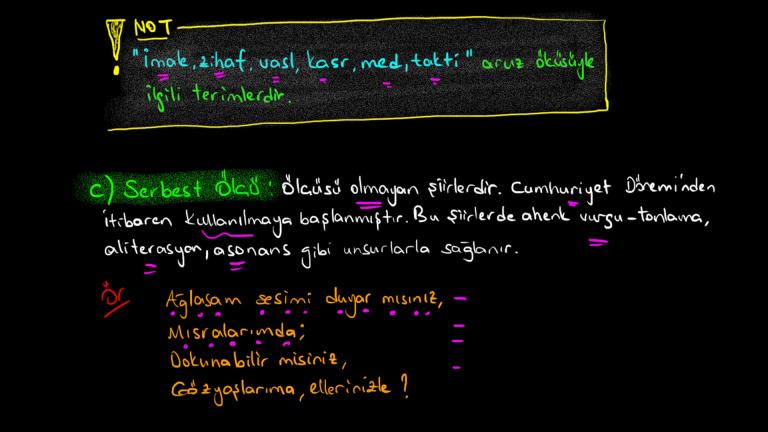 NOT
"İmale, zihaf, vasl, kasr, med, takti" aruz ölçüsüyle
ilgili terimlerdir.
c) Serbest Ölçü: Ölçüsü olmayan şiirlerdir. Cumhuriyet Dönemi'nden
itibaren kullanılmaya başlanmıştır. Bu şiirlerde ahenk vurgu-tonlama,
aliterasyon, asonans gibi unsurlarla sağlanır.
Ör
Ağlasam sesimi duyar mısınız,
Mısralarımda;
Dokunabilir misiniz,
Gözyaşlarıma, ellerinizle?